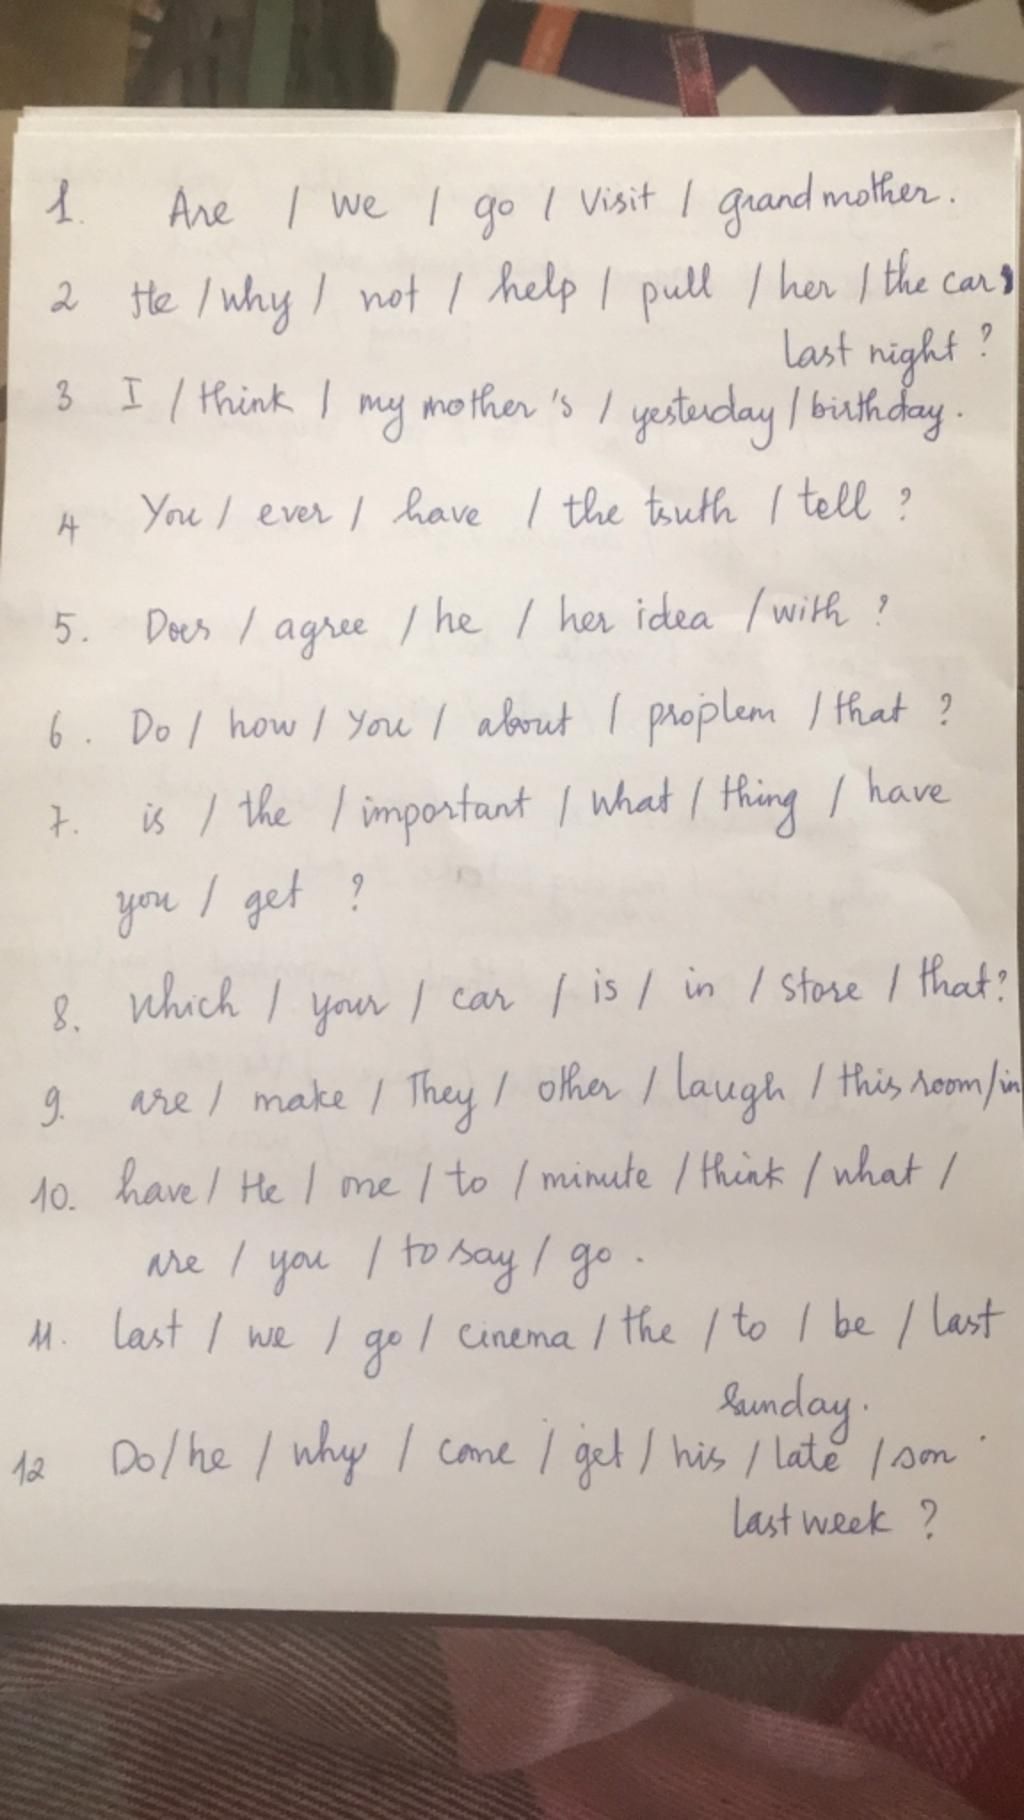 1. Are / we / go / visit / grandmother.
2 He / why / not / help / pull / her / the car
last night ?
3 I / think / my mother's / yesterday / birthday.
4 You / ever / have / the truth / tell ?
5. Does / agree / he / her idea / with ?
6. Do / how / you / about / proplem / that ?
7. is / the / important / what / thing / have
you / get ?
8. Which / your / car / is / in / store / that?
9. are / make / They / other / laugh / this room / in
10. have / He / one / to / minute / think / what /
are / you / to say / go .
11. last / we / go / cinema / the / to / be / last
Sunday.
12 Do / he / why / come / get / his / late / son
last week ?